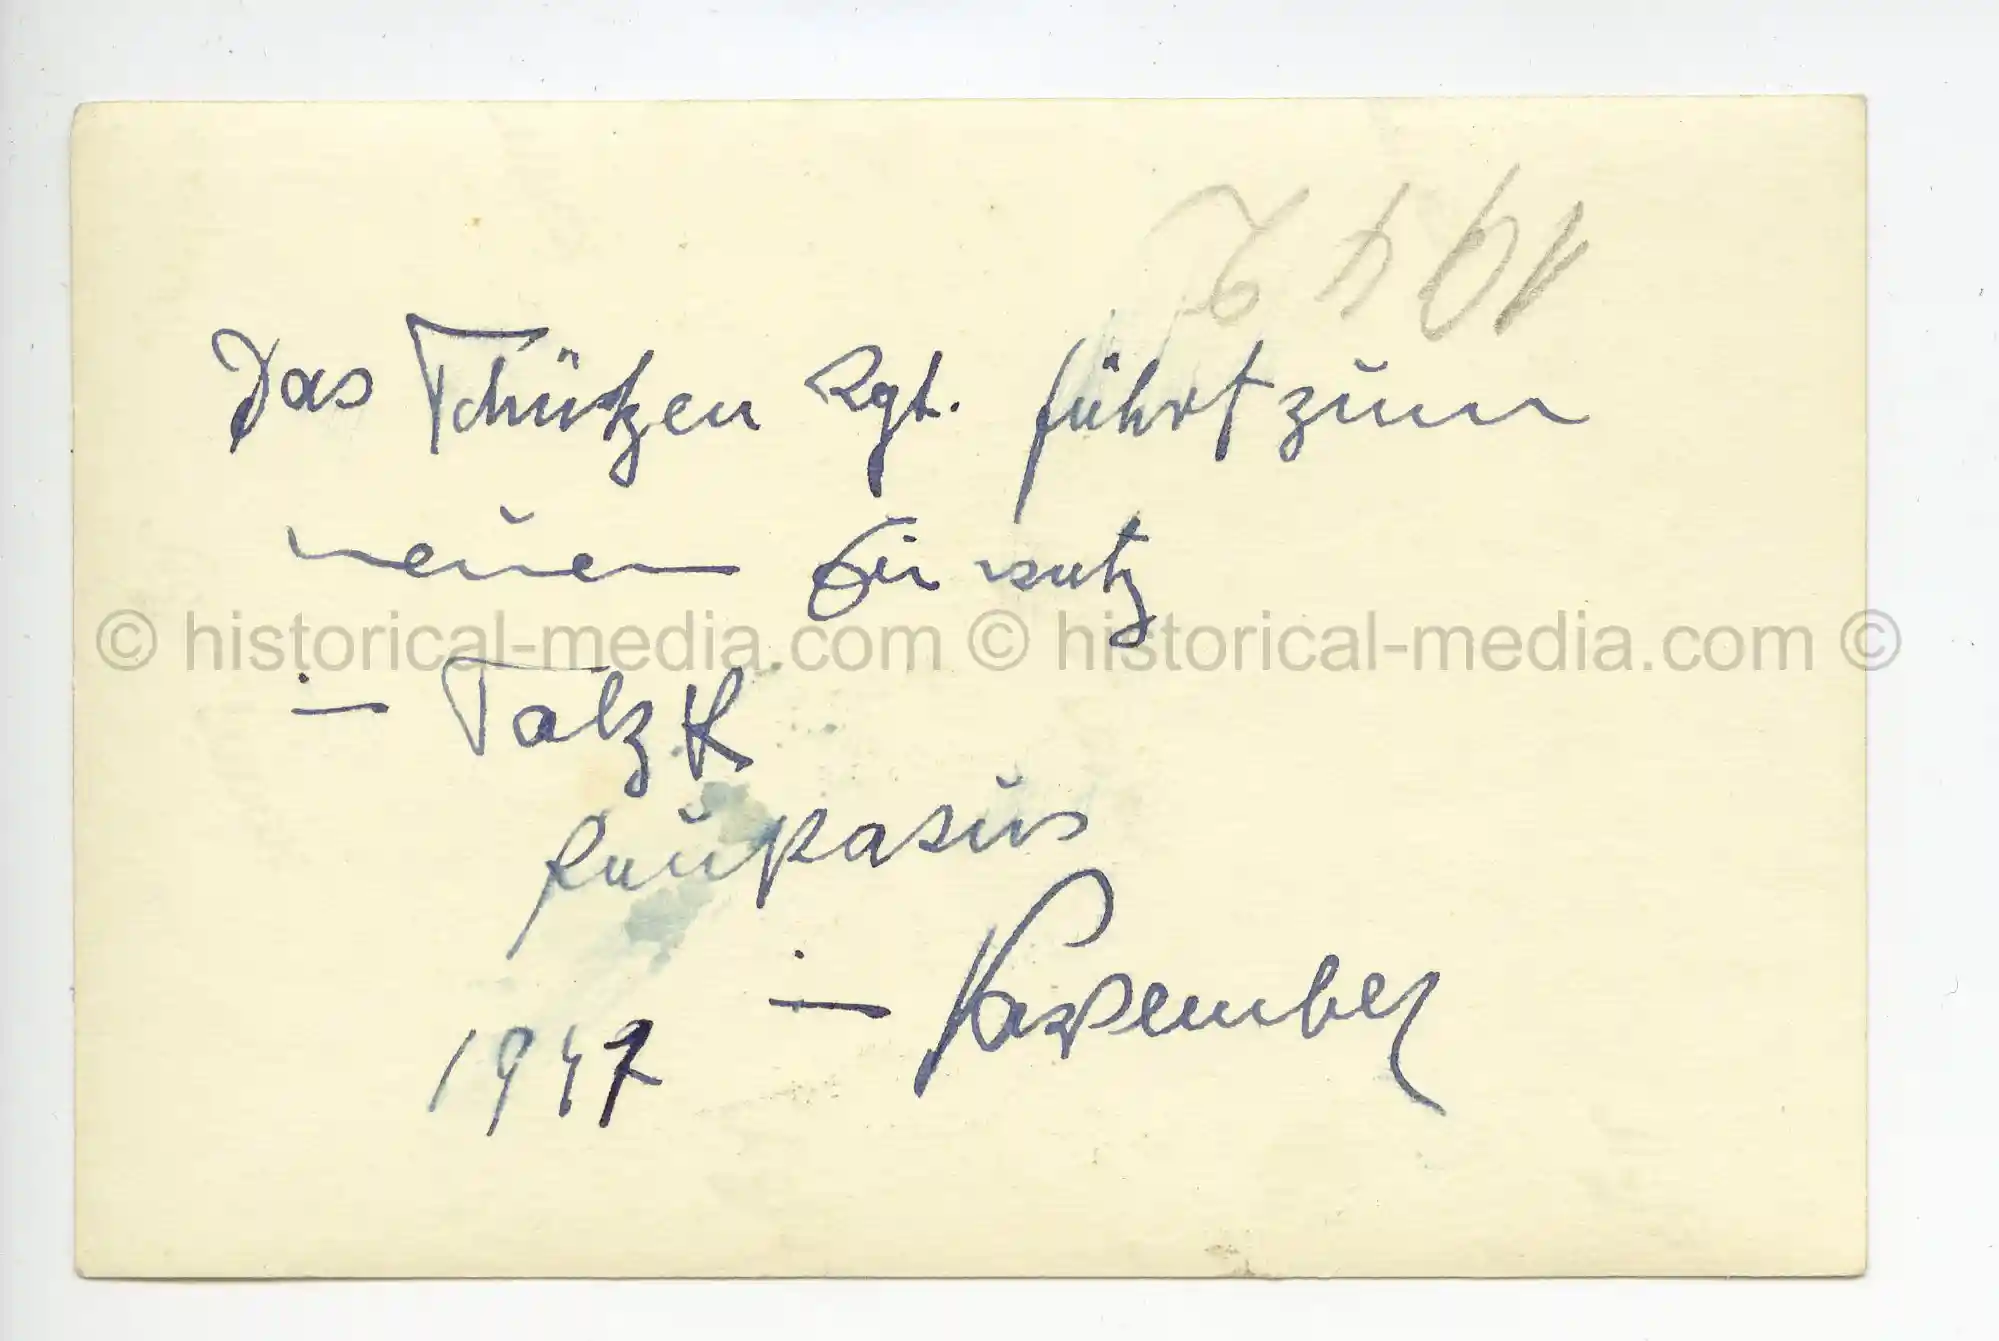 1942
Das Schützen Rgt. führt zum
neuen Einsatz
in Salzk
Kaukasus
in November
1942
© historical-media.com © historical-media.com ©